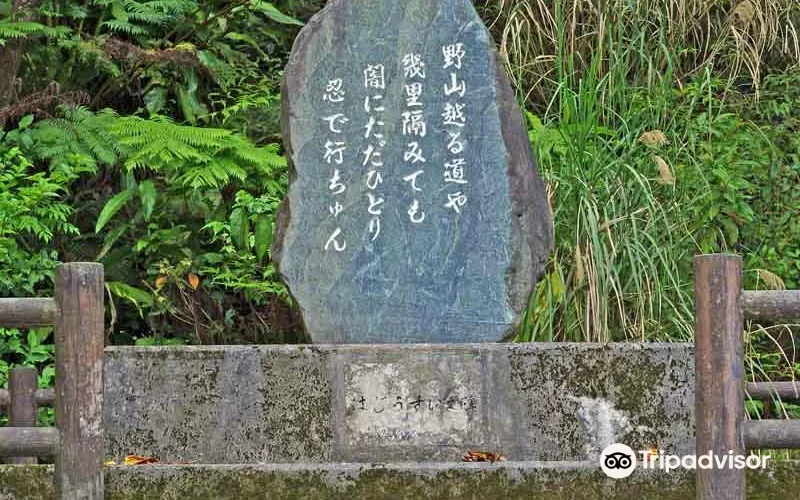 野山越る道や
幾里隔みても
闇にただひとり
忍で行ちゅん
Tripadvisor